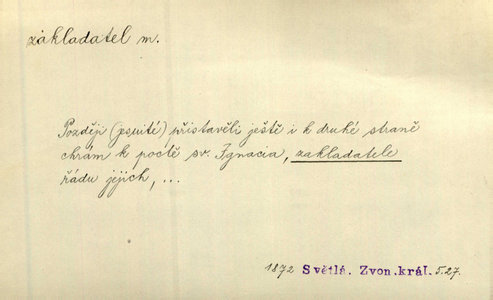 zakladatel m.
Později (jesuité) přistavěli ještě i k druhé straně
chrám k poctě sv. Ignacia, zakladatele
řádu jejich, ...
1872 Světlá. Zvon. král. 5.27.